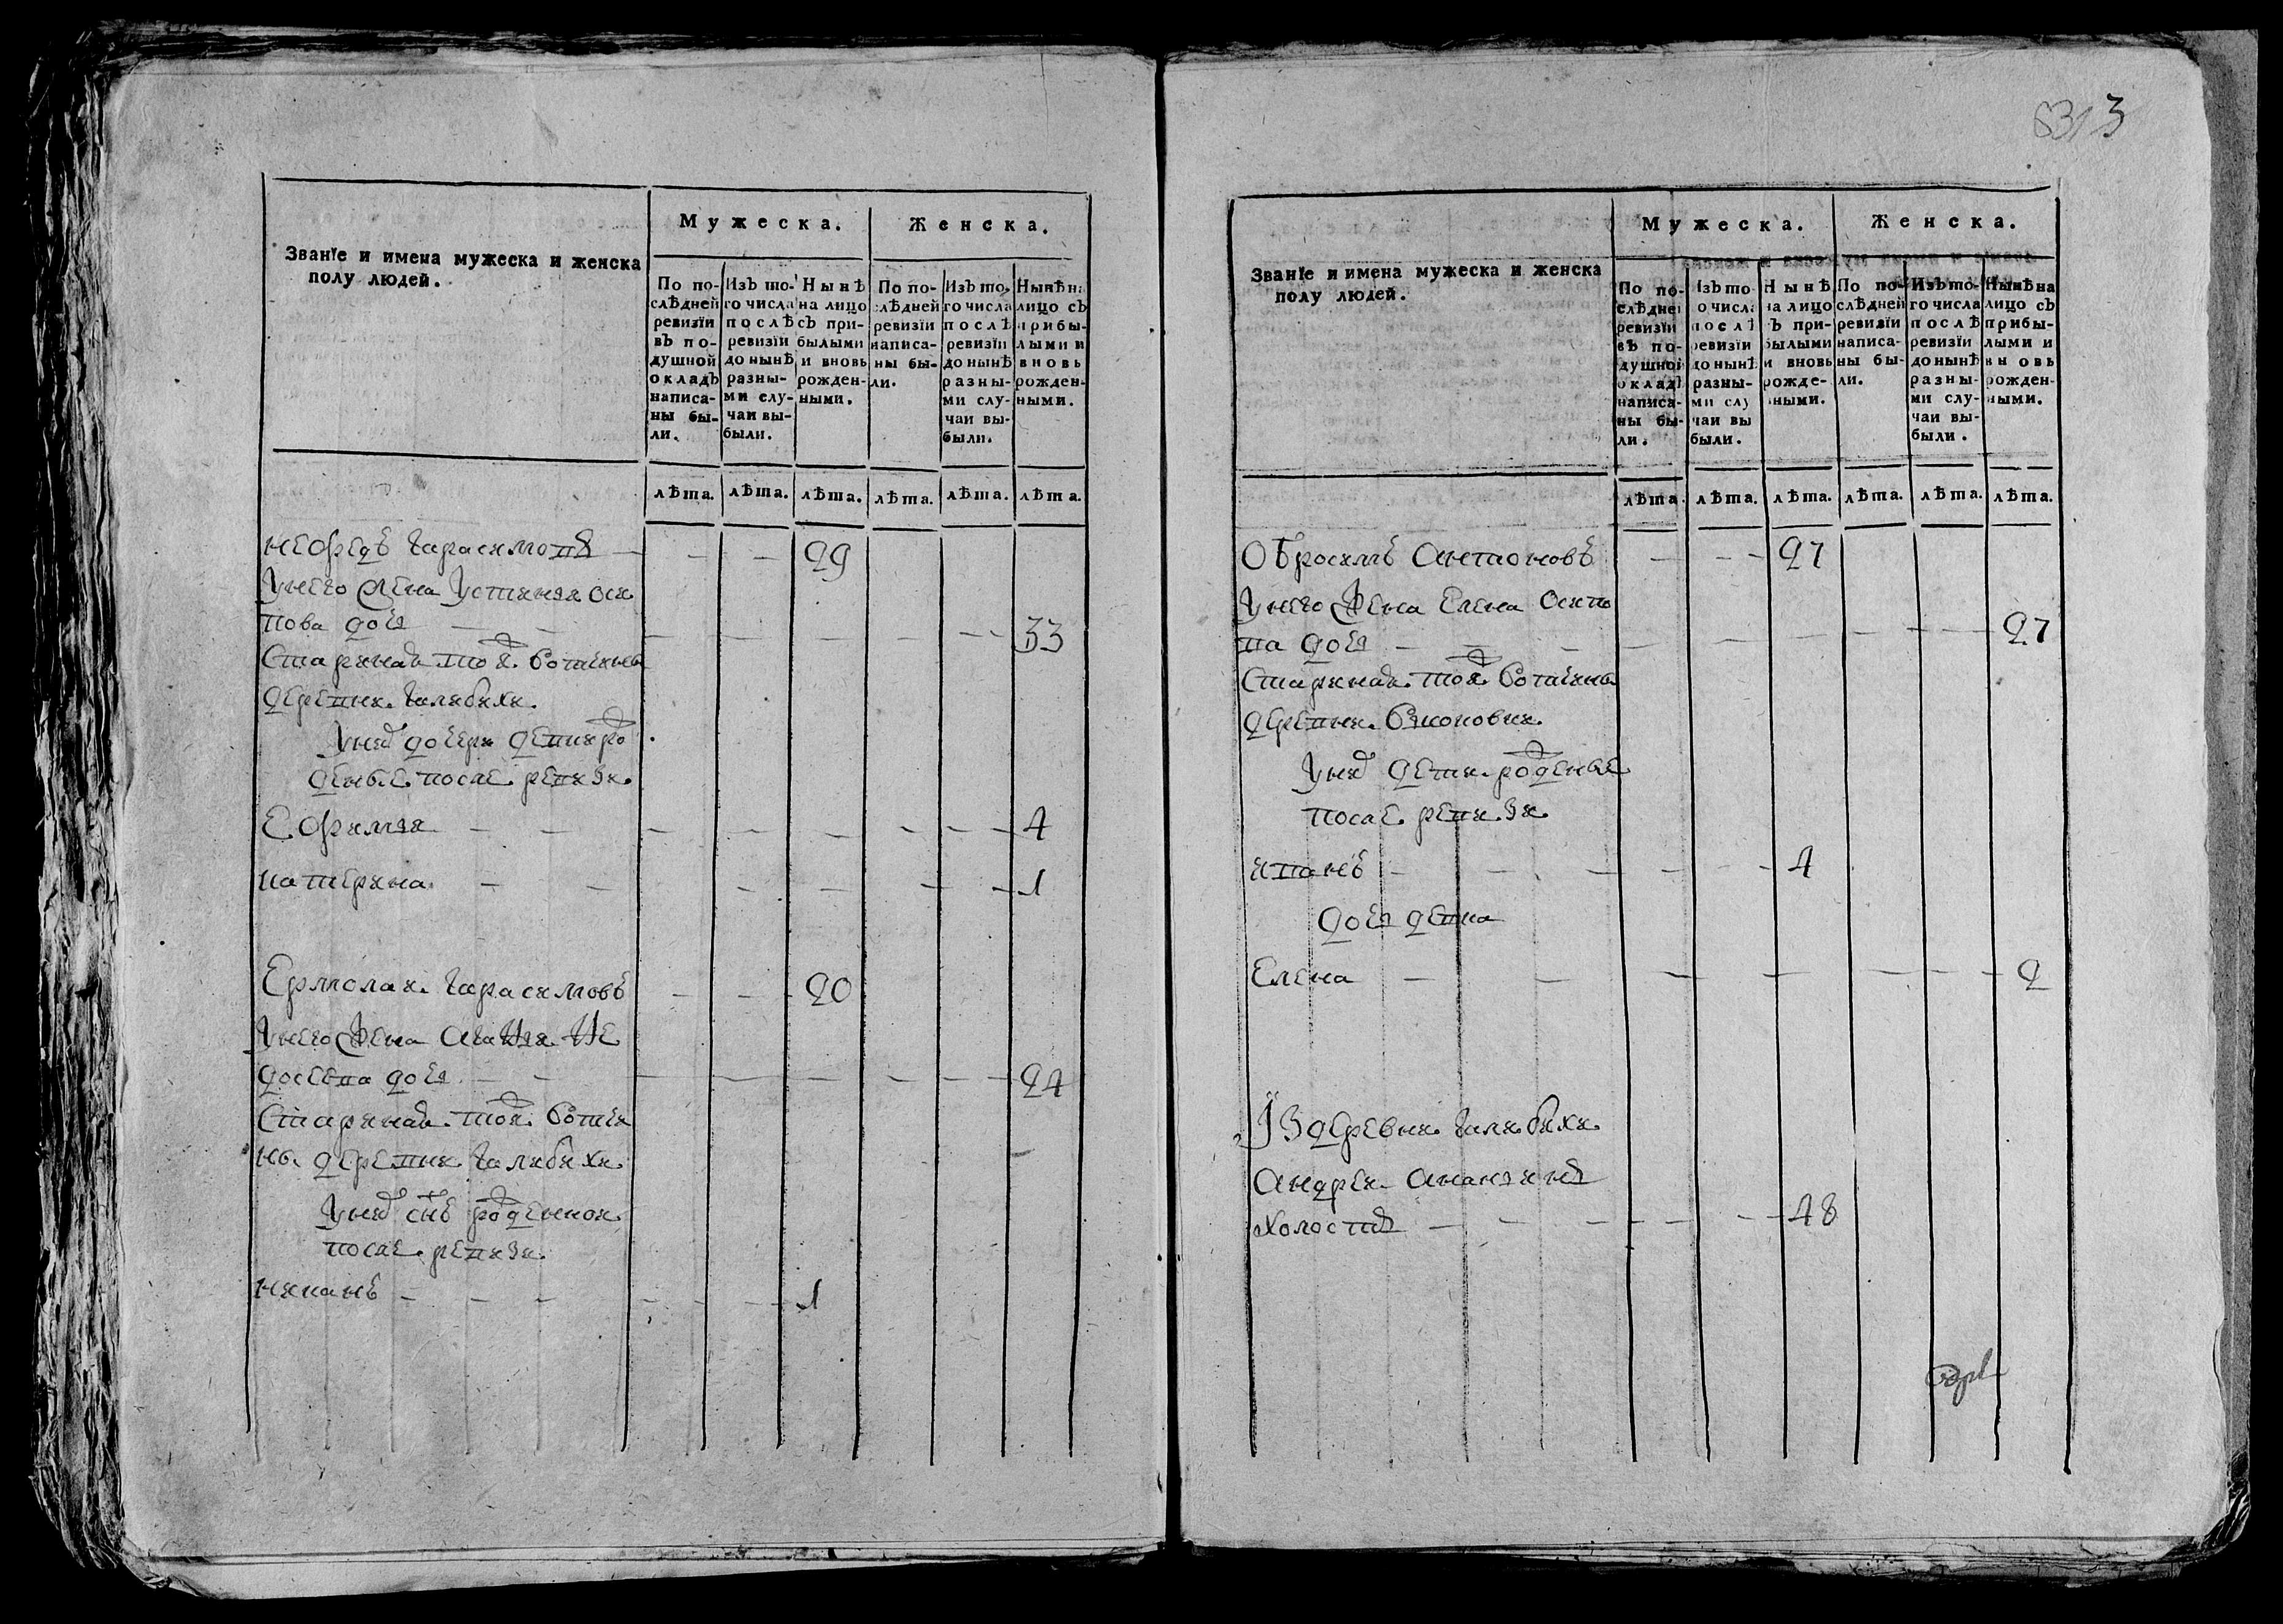 Званїе и имена мужеска и женска
полу людей.
Мужеска.
Женска.
По по-
слѣдней
ревизїи
въ по-
душной
окладъ
написа-
ны бы-
ли.
Изъ то-
го числа
послѣ
ревизїи
до нынѣ
разны-
ми слу-
чаи вы-
были.
Нынѣ
на лицо
съ при-
былыми
и вновь
рожден-
ными.
По по-
слѣдней
ревизїи
написа-
ны бы-
ли.
Изъ то-
го числа
послѣ
ревизїи
до нынѣ
разны-
ми слу-
чаи вы-
были.
Нынѣ на
лицо съ
прибы-
лыми и
вновь
рожден-
ными.
лѣта. лѣта. лѣта. лѣта. лѣта. лѣта.
нефедъ гарасимовъ 29
унего жена устинья оси
пова дочь 33
Старинная той вотчины
деревни галибихи
унихъ дочери двѣ рож
денные после ревизи
Ефимья 4
катерина 1
Ермолай гарасимовъ 20
унего жена
досеева дочь 24
Старинная той вотчи
ны деревни галибихи
унихъ снъ рожденной
после ревизи
1
313
Званїе и имена мужеска и женска
полу людей.
Мужеска.
Женска.
По по-
слѣдней
ревизїи
въ по-
душной
окладъ
написа-
ны бы-
ли.
Изъ то
го числа
послѣ
ревизїи
до нынѣ
разны-
ми слу
чаи вы
были.
Нынѣ
на лицо
съ при-
былыми
и вновь
рожде-
нными.
По по-
слѣдней
ревизїи
написа-
ны бы-
ли.
Изъ то-
го числа
послѣ
ревизїи
до нынѣ
разны-
ми слу-
чаи вы-
были.
Нынѣ на
лицо съ
прибы-
лыми и
вновь
рожден-
ными.
лѣта. лѣта. лѣта. лѣта. лѣта. лѣта.
Обросимъ Антоновъ 27
унего жена Елена Осипо
ва дочь 27
Старинная той вотчины
деревни
унихъ дети рожденые
после ревизи
иванъ 4
дочь девка
Елена 2
Із деревни галибихи
Андрей Ананьинъ
холостъ 48